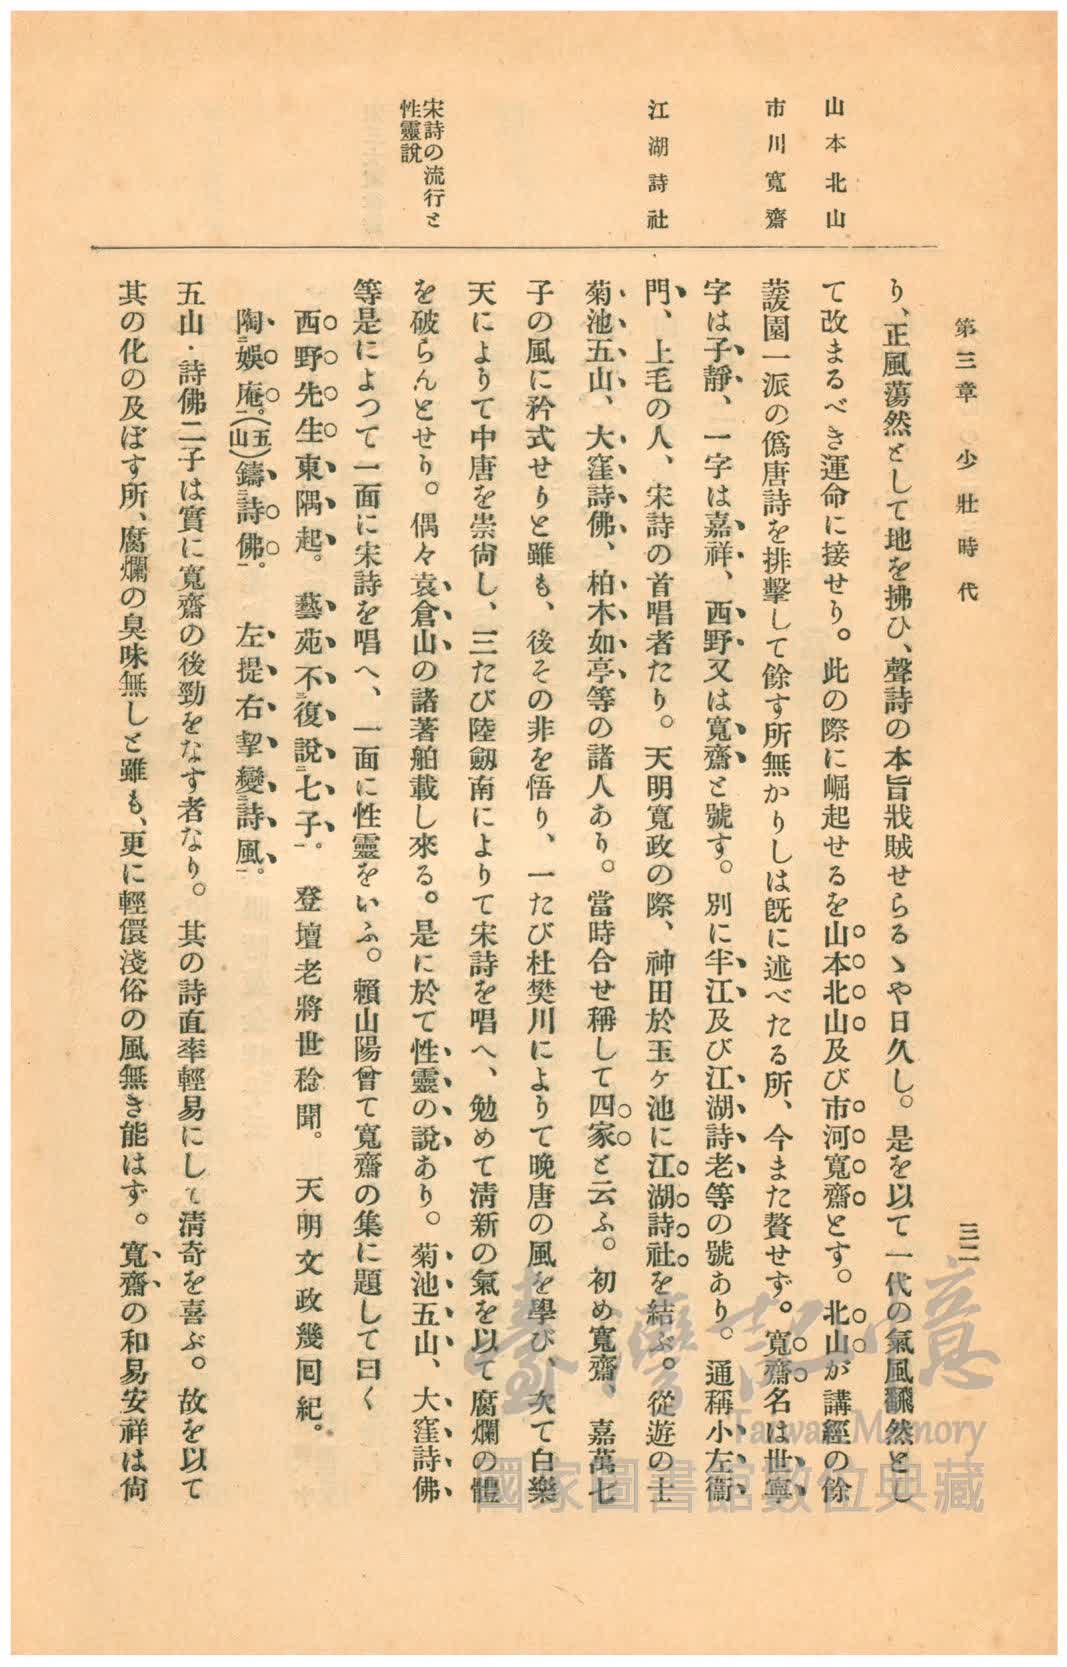 第三章 少壯時代
三二
山本北山
市川寬齋
江湖詩社
宋詩の流行と
性靈說
り、正風蕩然として地を拂ひ、聲詩の本旨戕賊せらるゝや日久し。是を以て一代の氣風飜然とし
て改まるべき運命に接せり。此の際に崛起せるを山本北山及び市河寬齋とす。北山が講經の餘
蘐園一派の僞唐詩を排擊して餘す所無かりしは旣に述べたる所、今また贅せず。寬齋名は世寧
字は子靜、一字は嘉祥、西野又は寬齋と號す。別に半江及び江湖詩老等の號あり。通稱小左衞
門、上毛の人、宋詩の首唱者たり。天明寬政の際、神田於玉ヶ池に江湖詩社を結ぶ。從遊の士
菊池五山、大窪詩佛、柏木如亭等の諸人あり。當時合せ稱して四家と云ふ。初め寬齋、嘉萬七
子の風に矜式せりと雖も、後その非を悟り、一たび杜樊川によりて晩唐の風を學び、次て白樂
天によりて中唐を崇尙し、三たび陸劔南によりて宋詩を唱へ、勉めて淸新の氣を以て腐爛の體
を破らんとせり。偶々袁倉山の諸著舶載し來る。是に於て性靈の說あり。菊池五山、大窪詩佛
等是によつて一面に宋詩を唱へ、一面に性靈をいふ。賴山陽曾て寬齋の集に題して曰く
西野先生東隅起。藝苑不復說二七子一。登壇老將世稔聞。天明文政幾囘紀。
陶二娛庵一。(五山)鑄二詩佛一。左提右挈變二詩風一。
五山・詩佛二子は實に寬齋の後勁をなす者なり。其の詩直率輕易にして淸奇を喜ぶ。故を以て
其の化の及ぼす所、腐爛の臭味無しと雖も、更に輕儇淺俗の風無き能はず。寬齋の和易安祥は尙
臺灣記憶
Taiwan Memory
國家圖書館數位典藏